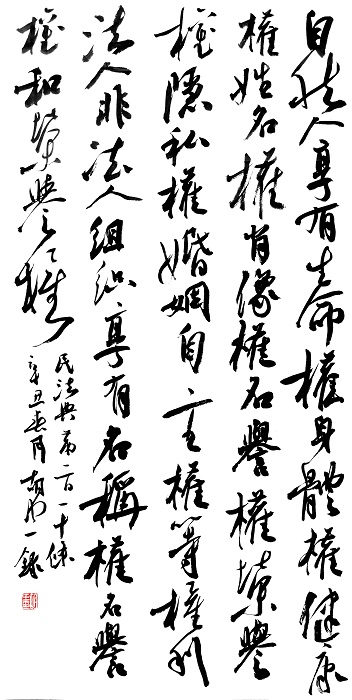 自然人享有生命權身體權健康
權姓名權肖像權名譽權榮譽
權隱私權婚姻自主權等權利
法人非法人組织享有名稱權名譽
權和榮譽權
民法典第一百一十條
辛丑春月
一錄